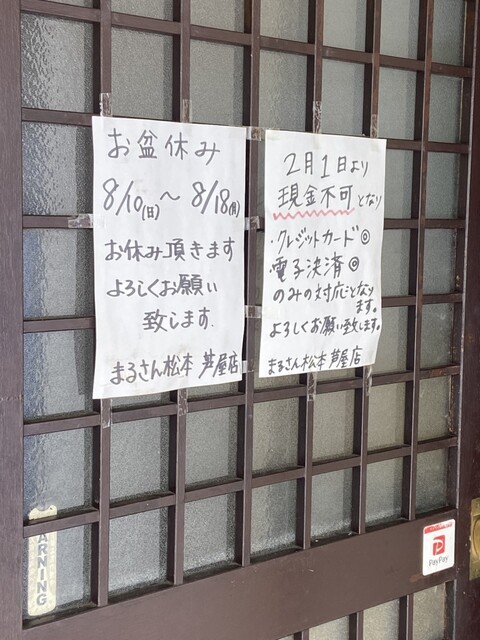 お盆休み
8/10(日)〜8/18(月)
お休み頂きます
よろしくお願い
致します.
まるさん松本 芦屋店
2月1日より
現金不可となり
・クレジットカード◎
・電子決済◎
のみの対応となり
ます。
よろしくお願い致します。
まるさん松本 芦屋店
PayPay
WARNING